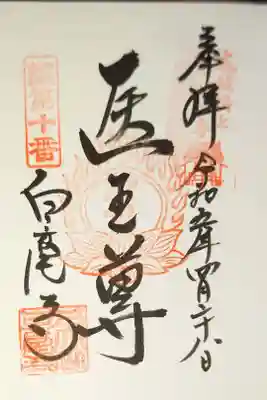 奉拝
令和五年四月二十八日
医王尊
第十番
白毫寺